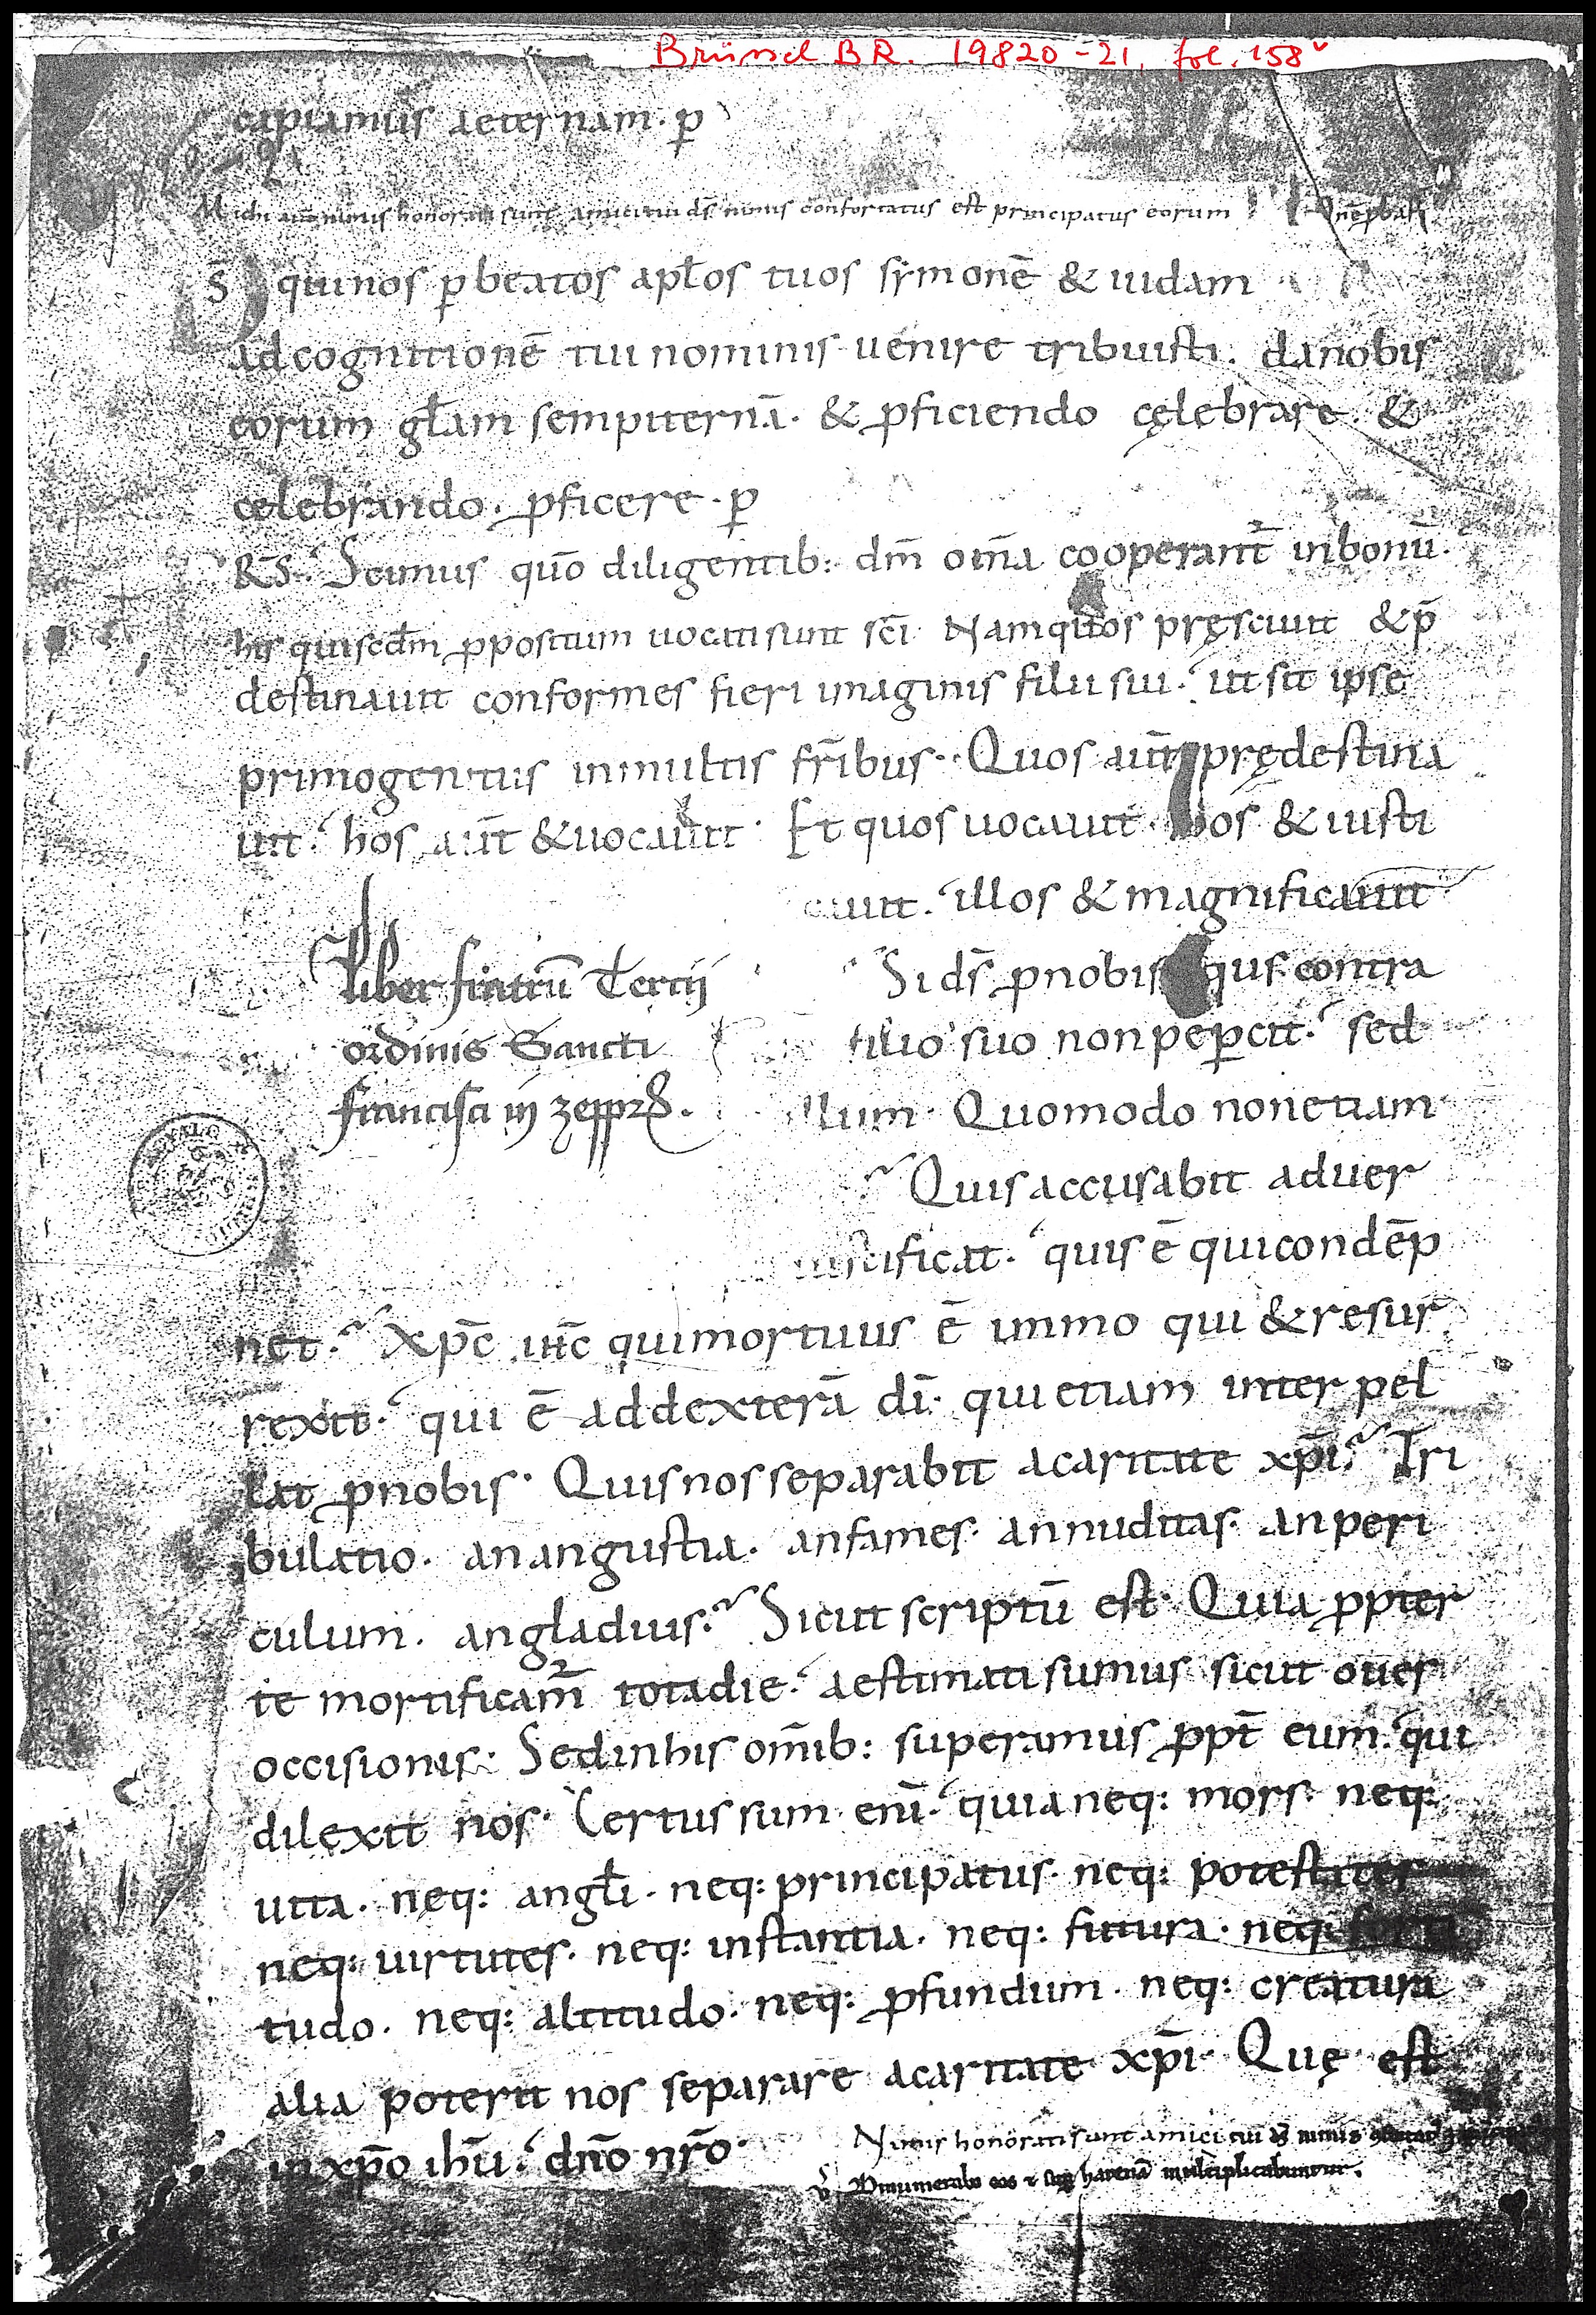 Brüssel BR. 19820-21, fol. 158v
capiamus aeternam · p̄
Michi aut̄ nimis honorati sunt amici tui d̄s nimis confortatus est principatus eorum
D̄s qui nos p̄ beatos apłos tuos sẏmonē & iudam
ad cognitionē tui nominis uenire tribuisti · da nobis
eorum głam sempiternā · & p̱ficiendo cęlebrare · &
celebrando · p̱ficere · p̄
R̄S. Scimus quō diligentib: dm̄ om̄a cooperant̄ in bonū ·
his qui scd̄m p̱positum uocati sunt scī · Nam quos pręsciuit & p̄
destinauit conformes fieri imaginis filii sui · ut sit ipse
primogenitus in multis fr̄ibus · Quos aut̄ prędestina
uit · hos aut̄ & uocauit · Et quos uocauit · hos & iusti
cauit · illos & magnificauit
Liber fratrū Tercij
Si d̄s p̱ nobis quis contra
ordinis Sancti
filio suo non pep̱cit · sed
francisci in zepp̱
illum · Quomodo non etiam
Quis accusabit aduer
iustificat · quis ē qui condēp
net · xp̄c ih̄c qui mortuus ē immo qui & resur
rexit · qui ē ad dexterā dī · qui etiam interpel
lat p̱ nobis · Quis nos separabit a caritate xp̄i · Tri
bulatio · an angustia · an fames · an nuditas · an peri
culum · an gladius · Sicut scriptū est · Quia p̱pter
te mortificam̄ tota die · aestimati sumus sicut oues
occisionis · Sed in his om̄ib: superamus p̱pt̄ eum · qui
dilexit nos · Certus sum enī · quia neq: mors · neq:
uita · neq: angłi · neq: principatus · neq: potestates
neq: uirtutes · neq: instantia · neq: futura · neq: forti
tudo · neq: altitudo · neq: p̱fundum · neq: creatura
alia poterit nos separare a caritate xp̄i · Quę est
in xp̄o ih̄u · dn̄o nr̄o ·
Nimis honorati sunt amici tui d̄s nimis
v̄ Dinumerabo eos & sup̱ harenā multiplicabuntur.